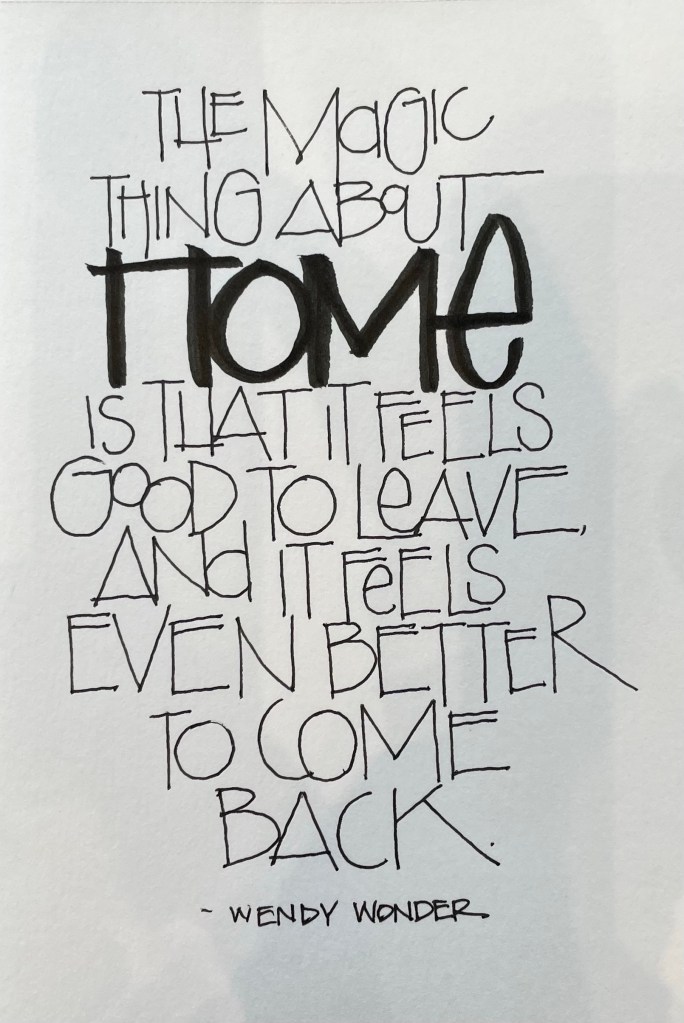 THE MAGIC
THING ABOUT
HOME
IS THAT IT FEELS
GOOD TO LEAVE,
AND IT FEELS
EVEN BETTER
TO COME
BACK.
~ WENDY WONDER